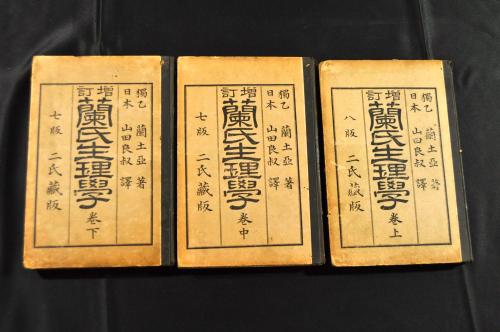 獨乙 蘭土亞 著
日本 山田良叔 譯
增訂
蘭氏生理學 卷上
八版 二氏藏版
獨乙 蘭土亞 著
日本 山田良叔 譯
增訂
蘭氏生理學 卷中
七版 二氏藏版
獨乙 蘭土亞 著
日本 山田良叔 譯
增訂
蘭氏生理學 卷下
七版 二氏藏版